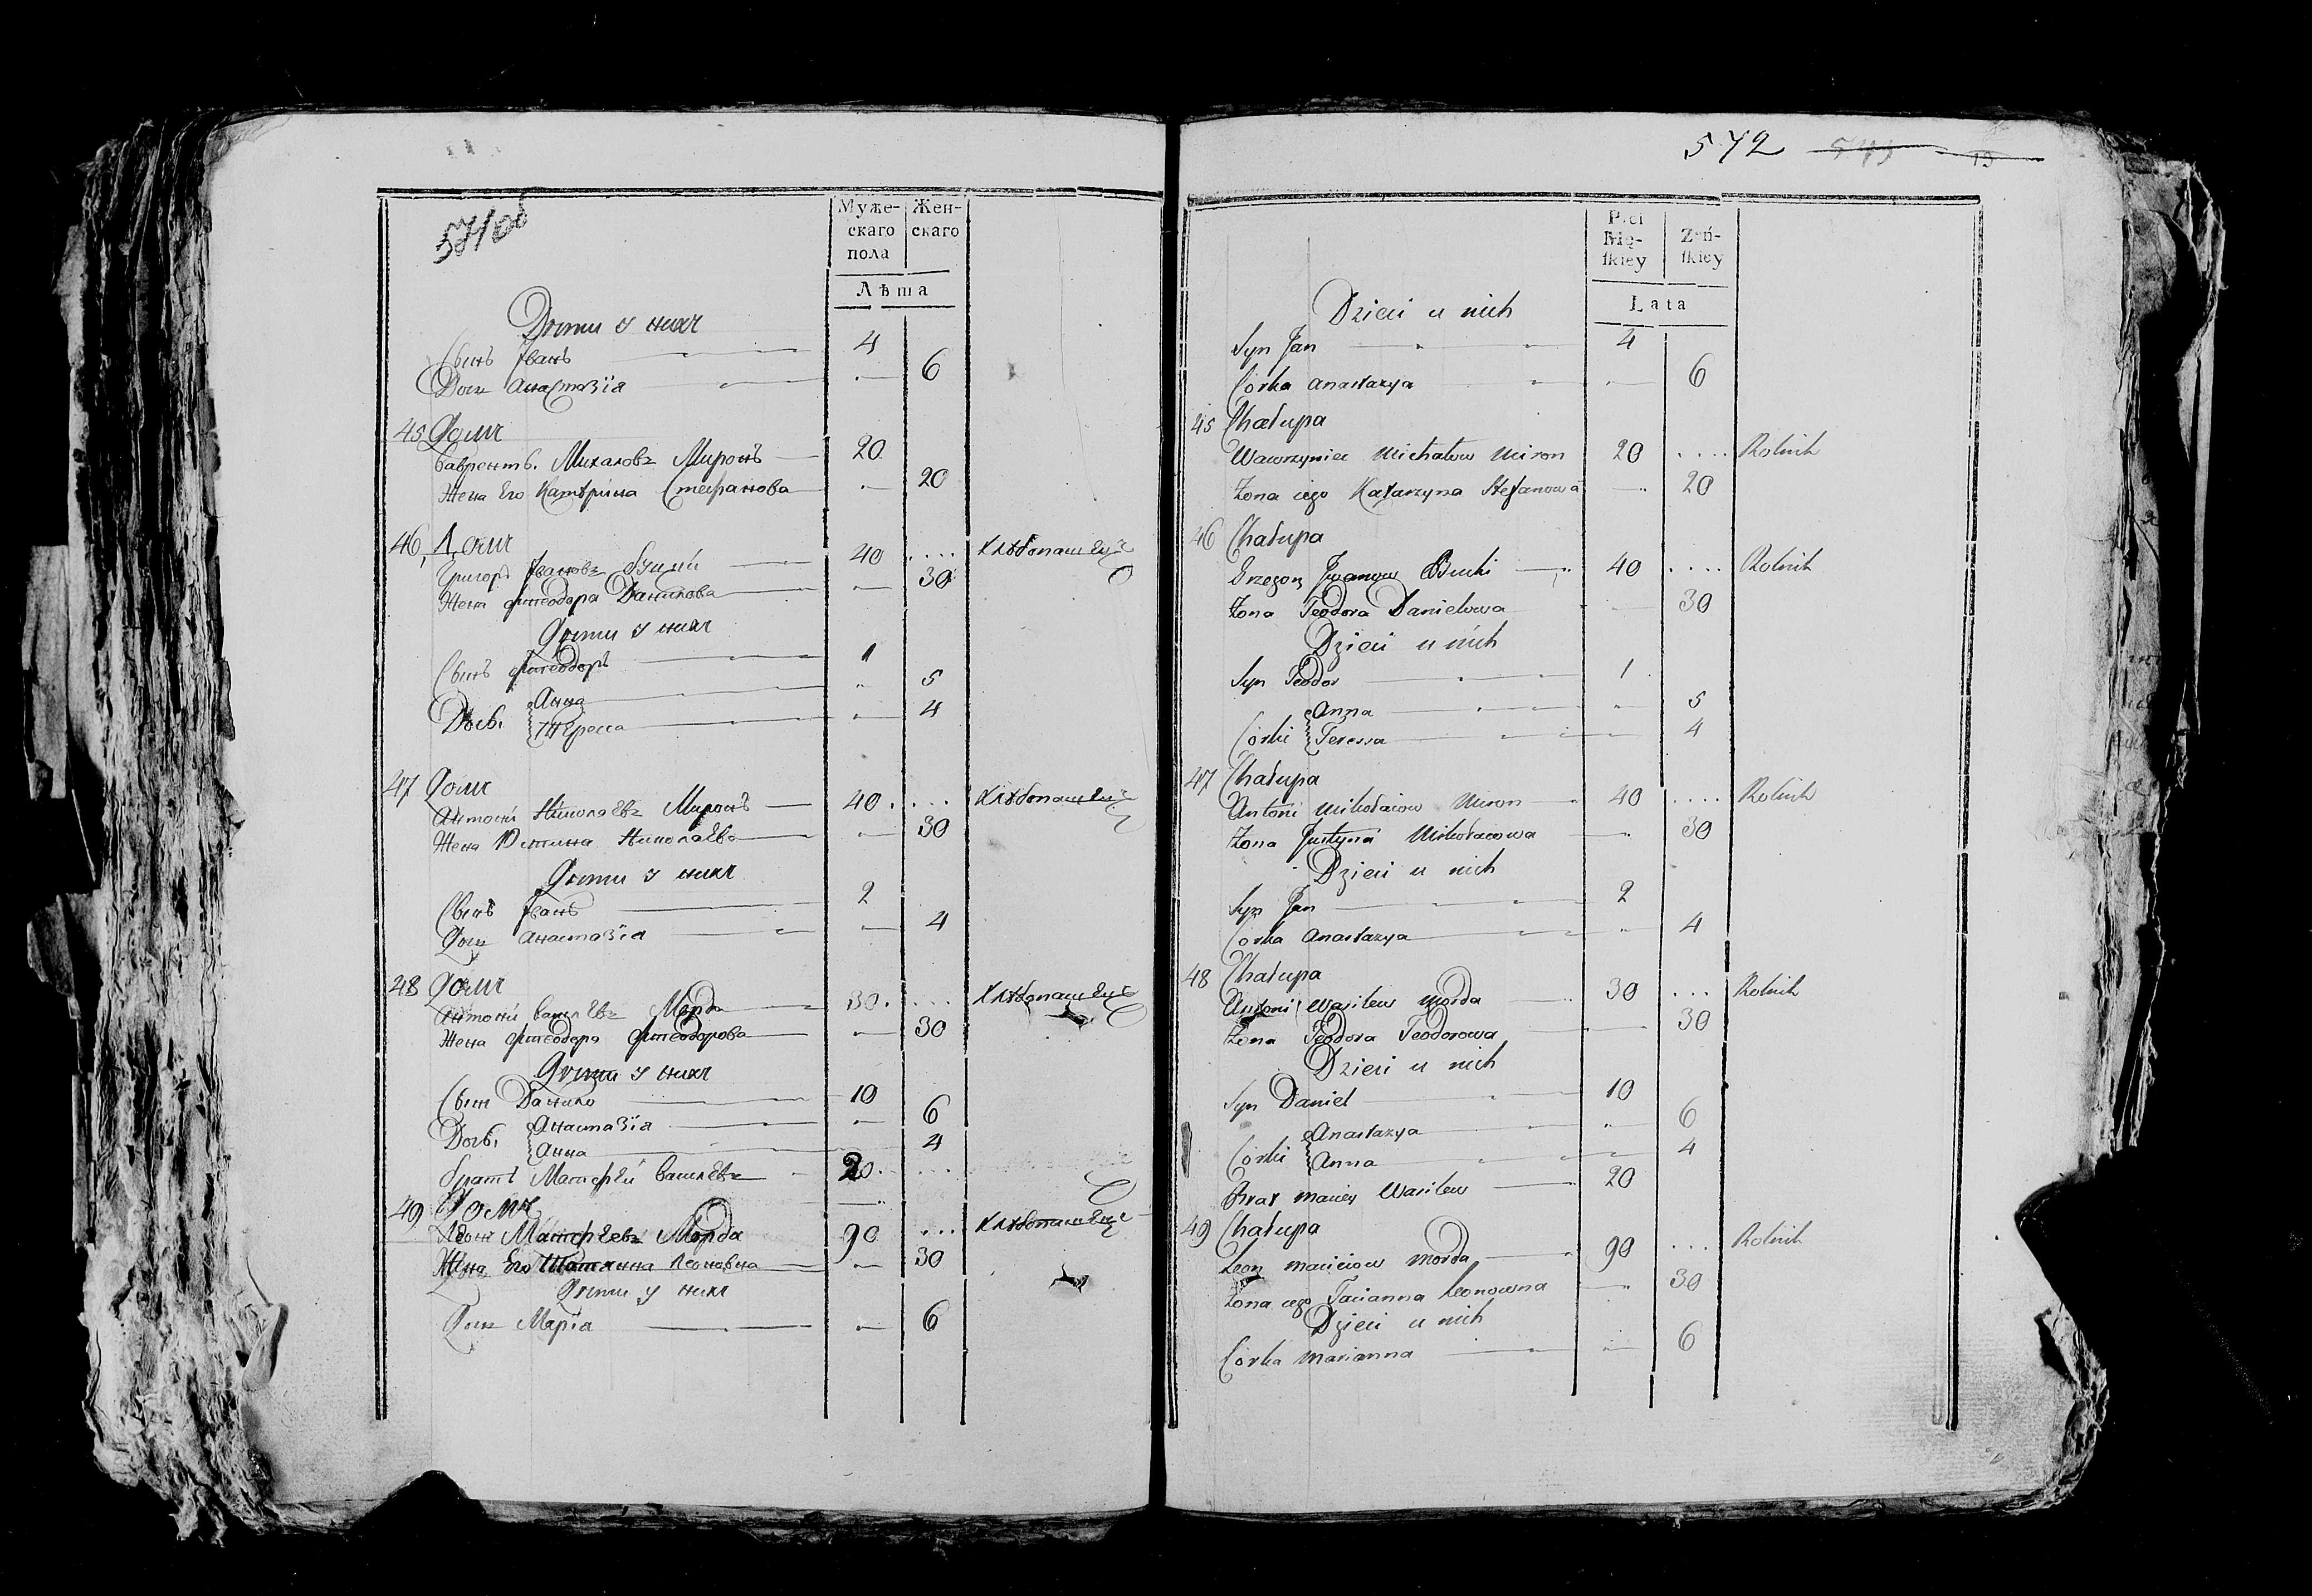 571об
Муже- Жен-
скаго скаго
пола
Лѣта
Дѣти у нихъ
Сынъ Іванъ 4
Дочь Анастазія 6
45 Домъ
Лаврентъ Михаловъ Миронъ 20
Жена Его Катерина Стефанова 20
46 Домъ
Григоръ Івановъ 40 .... Хлѣбопашецъ
Жена Фтеодора Данилова 30
Дѣти у нихъ
Сынъ Фтеодоръ 1
Анна 5
Дочь Тересса 4
47 Домъ
Антоній Николаевъ Миронъ 40 .... Хлѣбопашецъ
Жена Юстина Николаева 30
Дѣти у нихъ
Сынъ Іванъ 2
Дочь Анастазіа 4
48 Домъ
Антоній Васильевъ Морда 30 .... Хлѣбопашецъ
Жена Фтеодора Фтеодорова 30
Дѣти у нихъ
Сын Данило 10
Дочь Анастазіа 6
Анна 4
братъ Матфей Васильевъ 20 ....
49 Домъ
Леон Матфѣевъ Морда 90 ... Хлѣбопашецъ
Жена Его Татьянна Леоновна 30
Дѣти у нихъ
Дочь Маріа 6
572
Płci
Mę- Zeń-
ſkiey ſkiey
Lata
Dzieci u nich
Syn Jan 4
Corka Anastazya 6
45 Chałupa
Wawrzyniec Michałow Miron 20 .... Rolnik
Zona iego Katarzyna Stefanowa 20
46 Chałupa
Grzegorz Jwanow Bucki 40 .... Rolnik
Zona Teodora Danielowa 30
Dzieci u nich
Syn Teodor 1
Anna 5
Corki Teressa 4
47 Chałupa
Antoni Mikołaiow Miron 40 .... Rolnik
Zona Justyna Mikołaiowa 30
Dzieci u nich
Syn Jan 2
Corka Anastazya 4
48 Chałupa
Antoni Wasilew Morda 30 ... Rolnik
Zona Teodora Teodorowa 30
Dzieci u nich
Syn Daniel 10
Anastazya 6
Corki Anna 4
Brat Maciey Wasilew 20
49 Chałupa
Leon Maciciow Morda 90 ... Rolnik
Zona iego Tacianna Leonowna 30
Dzieci u nich
Corka Marianna 6